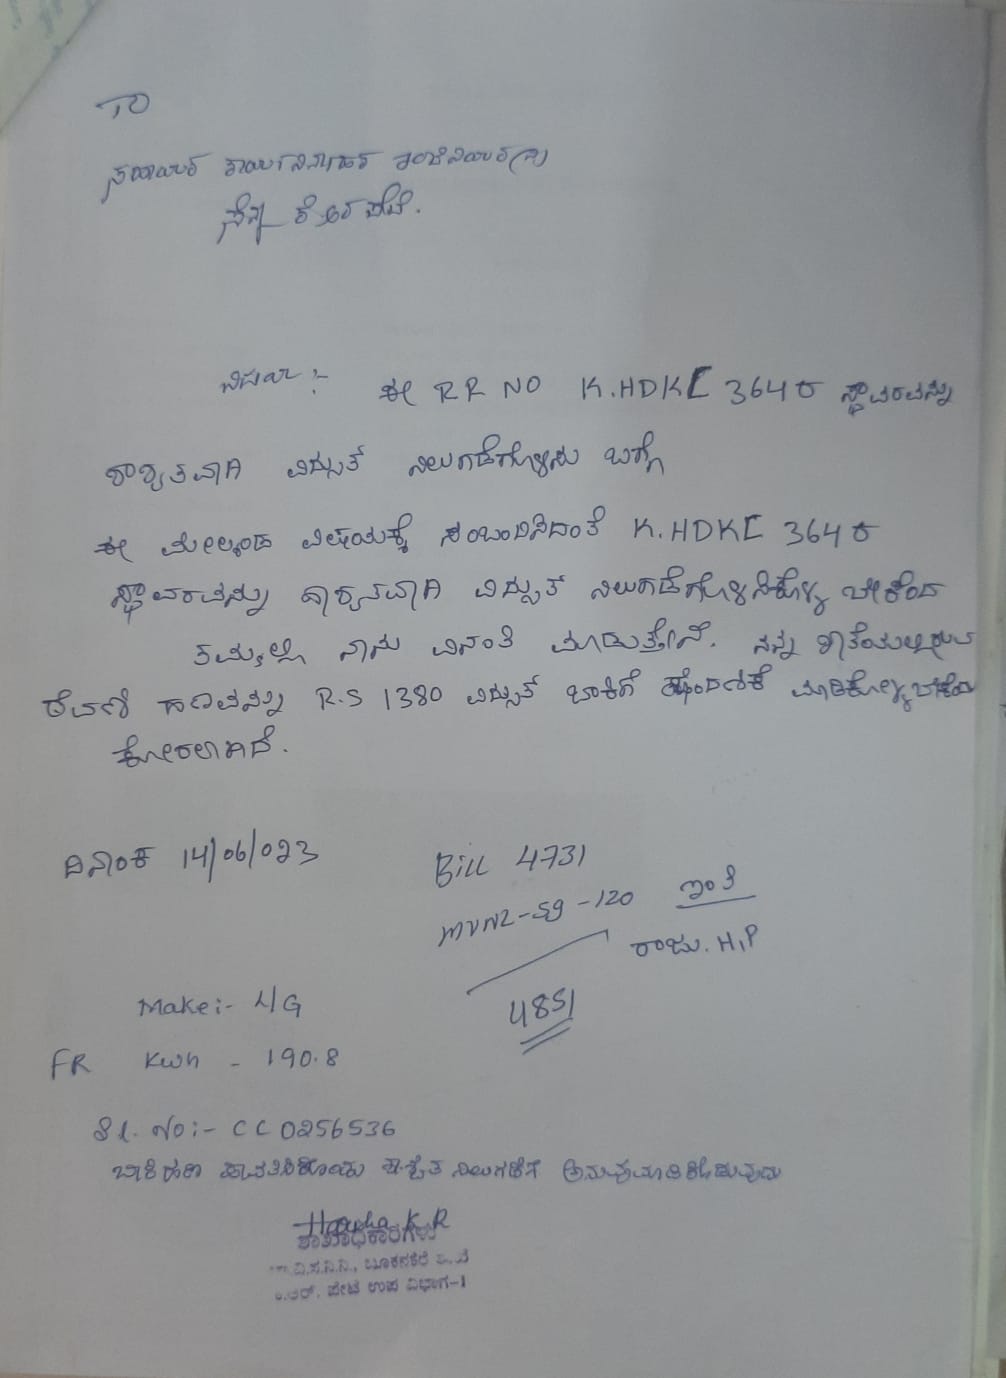 TO
ಸಹಾಯಕ ಕಾರ್ಯನಿರ್ವಾಹಕ ಇಂಜಿನಿಯರ(ವಿ)
ಸೆಸ್ಕ ಕೆ.ಆರ ಪೇಟೆ.
ವಿಷಯ :- ಈ RR NO K.HDKL 3648 ಸ್ಥಾವರವನ್ನು
ಶಾಶ್ವತವಾಗಿ ವಿದ್ಯುತ್ ನಿಲುಗಡೆಗೊಳಿಸುವ ಬಗ್ಗೆ
ಈ ಮೇಲ್ಕಂಡ ವಿಷಯಕ್ಕೆ ಸಂಬಂದಿಸಿದಂತೆ K.HDKL 3648
ಸ್ಥಾವರವನ್ನು ಶಾಶ್ವತವಾಗಿ ವಿದ್ಯುತ್ ನಿಲುಗಡೆಗೊಳಿಸಿಕೊಳ್ಳ ಬೇಕೆಂದ
ತಮ್ಮಲ್ಲಿ ನಾನು ವಿನಂತಿ ಮಾಡುತ್ತೇನೆ. ನನ್ನ ಖಾತೆಯಲ್ಲಿರುವ
ಠೇವಣಿ ಹಣವನ್ನು R.S 1380 ವಿದ್ಯುತ್ ಬಾಕಿಗೆ ಹೊಂದಣಿಕೆ ಮಾಡಿಕೊಳ್ಳಬೇಕೆಂದು
ಕೋರಲಾಗಿದೆ.
ದಿನಾಂಕ 14/06/023
Bill 4731
MVNL-59 - 120 ಇಂತಿ
ರಾಜು. H.P
4851
Make:- L/G
FR Kwh - 190.8
Sl. No:- CC 0256536
ಬಾಕಿ ಹಣ ಪಾವತಿಸಿಕೊಂಡು ಶಾಶ್ವತ ನಿಲುಗಡೆಗೆ
Harsha K R
ಶಾಖಾಧಿಕಾರಿಗಳು
ವಿ.ಸ.ನಿ.ನಿ., ಬೂಕನಕೆರೆ
ಆರ್. ಪೇಟೆ ಉಪ ವಿಭಾಗ-1